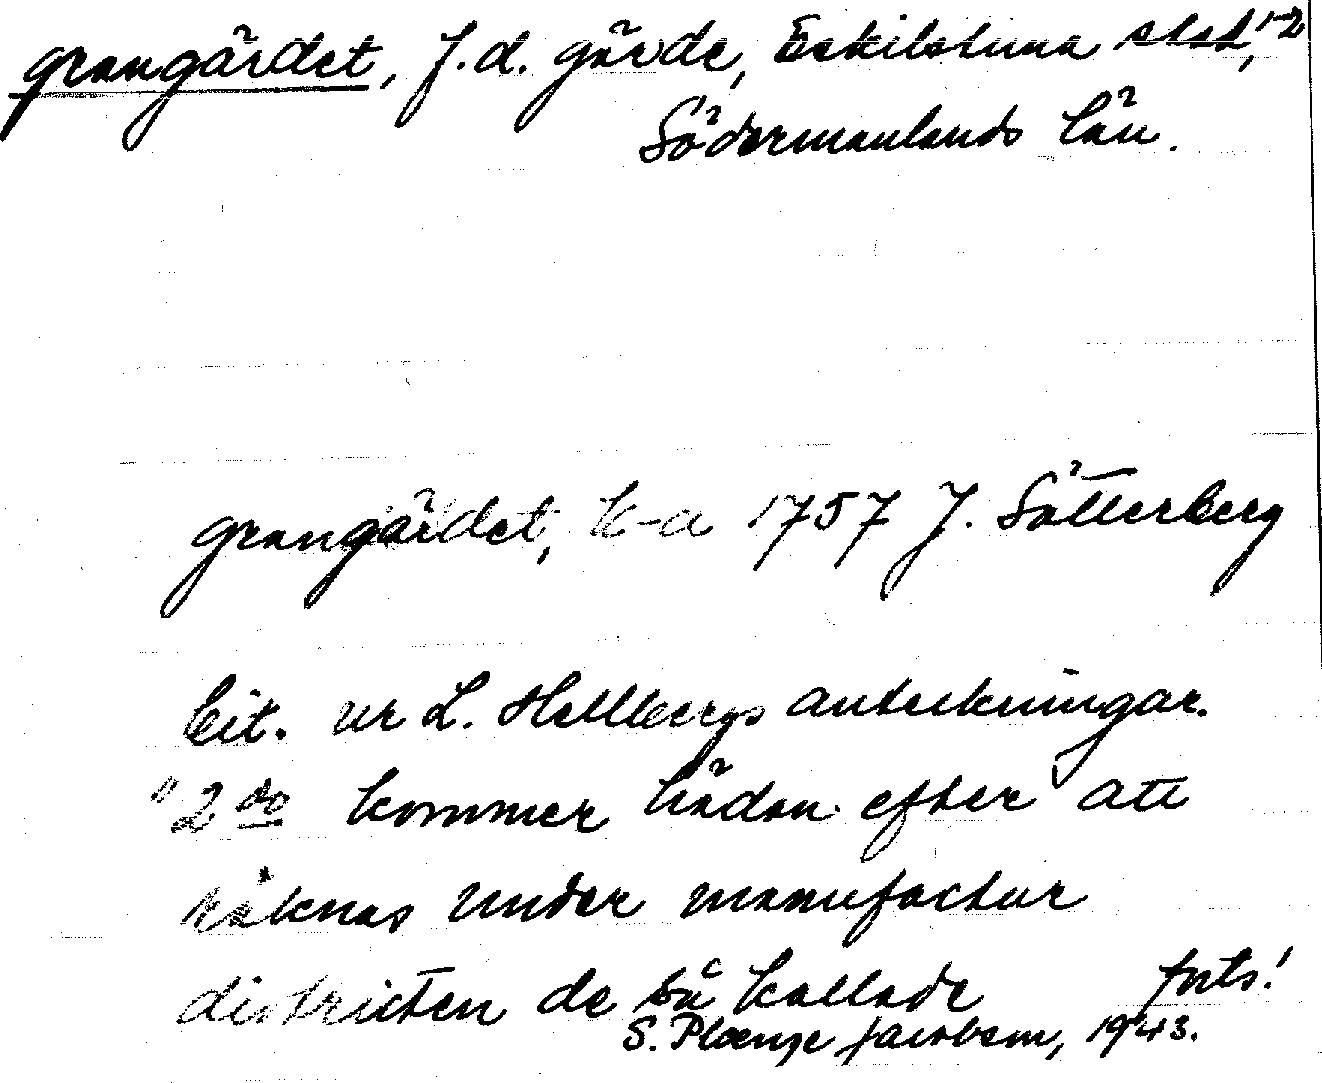 grangärdet, f.d. gärde, Eskilstuna stad, 1-2
Södermanlands län.
grangärdet, k-a 1757 J. Sätterberg
Cit. ur L. Hellbergs anteckningar.
"2 do kommer hädan efter att
räknas under manufactur
districten de så kallade forts!
S. Ploenge Jacobson, 1943.